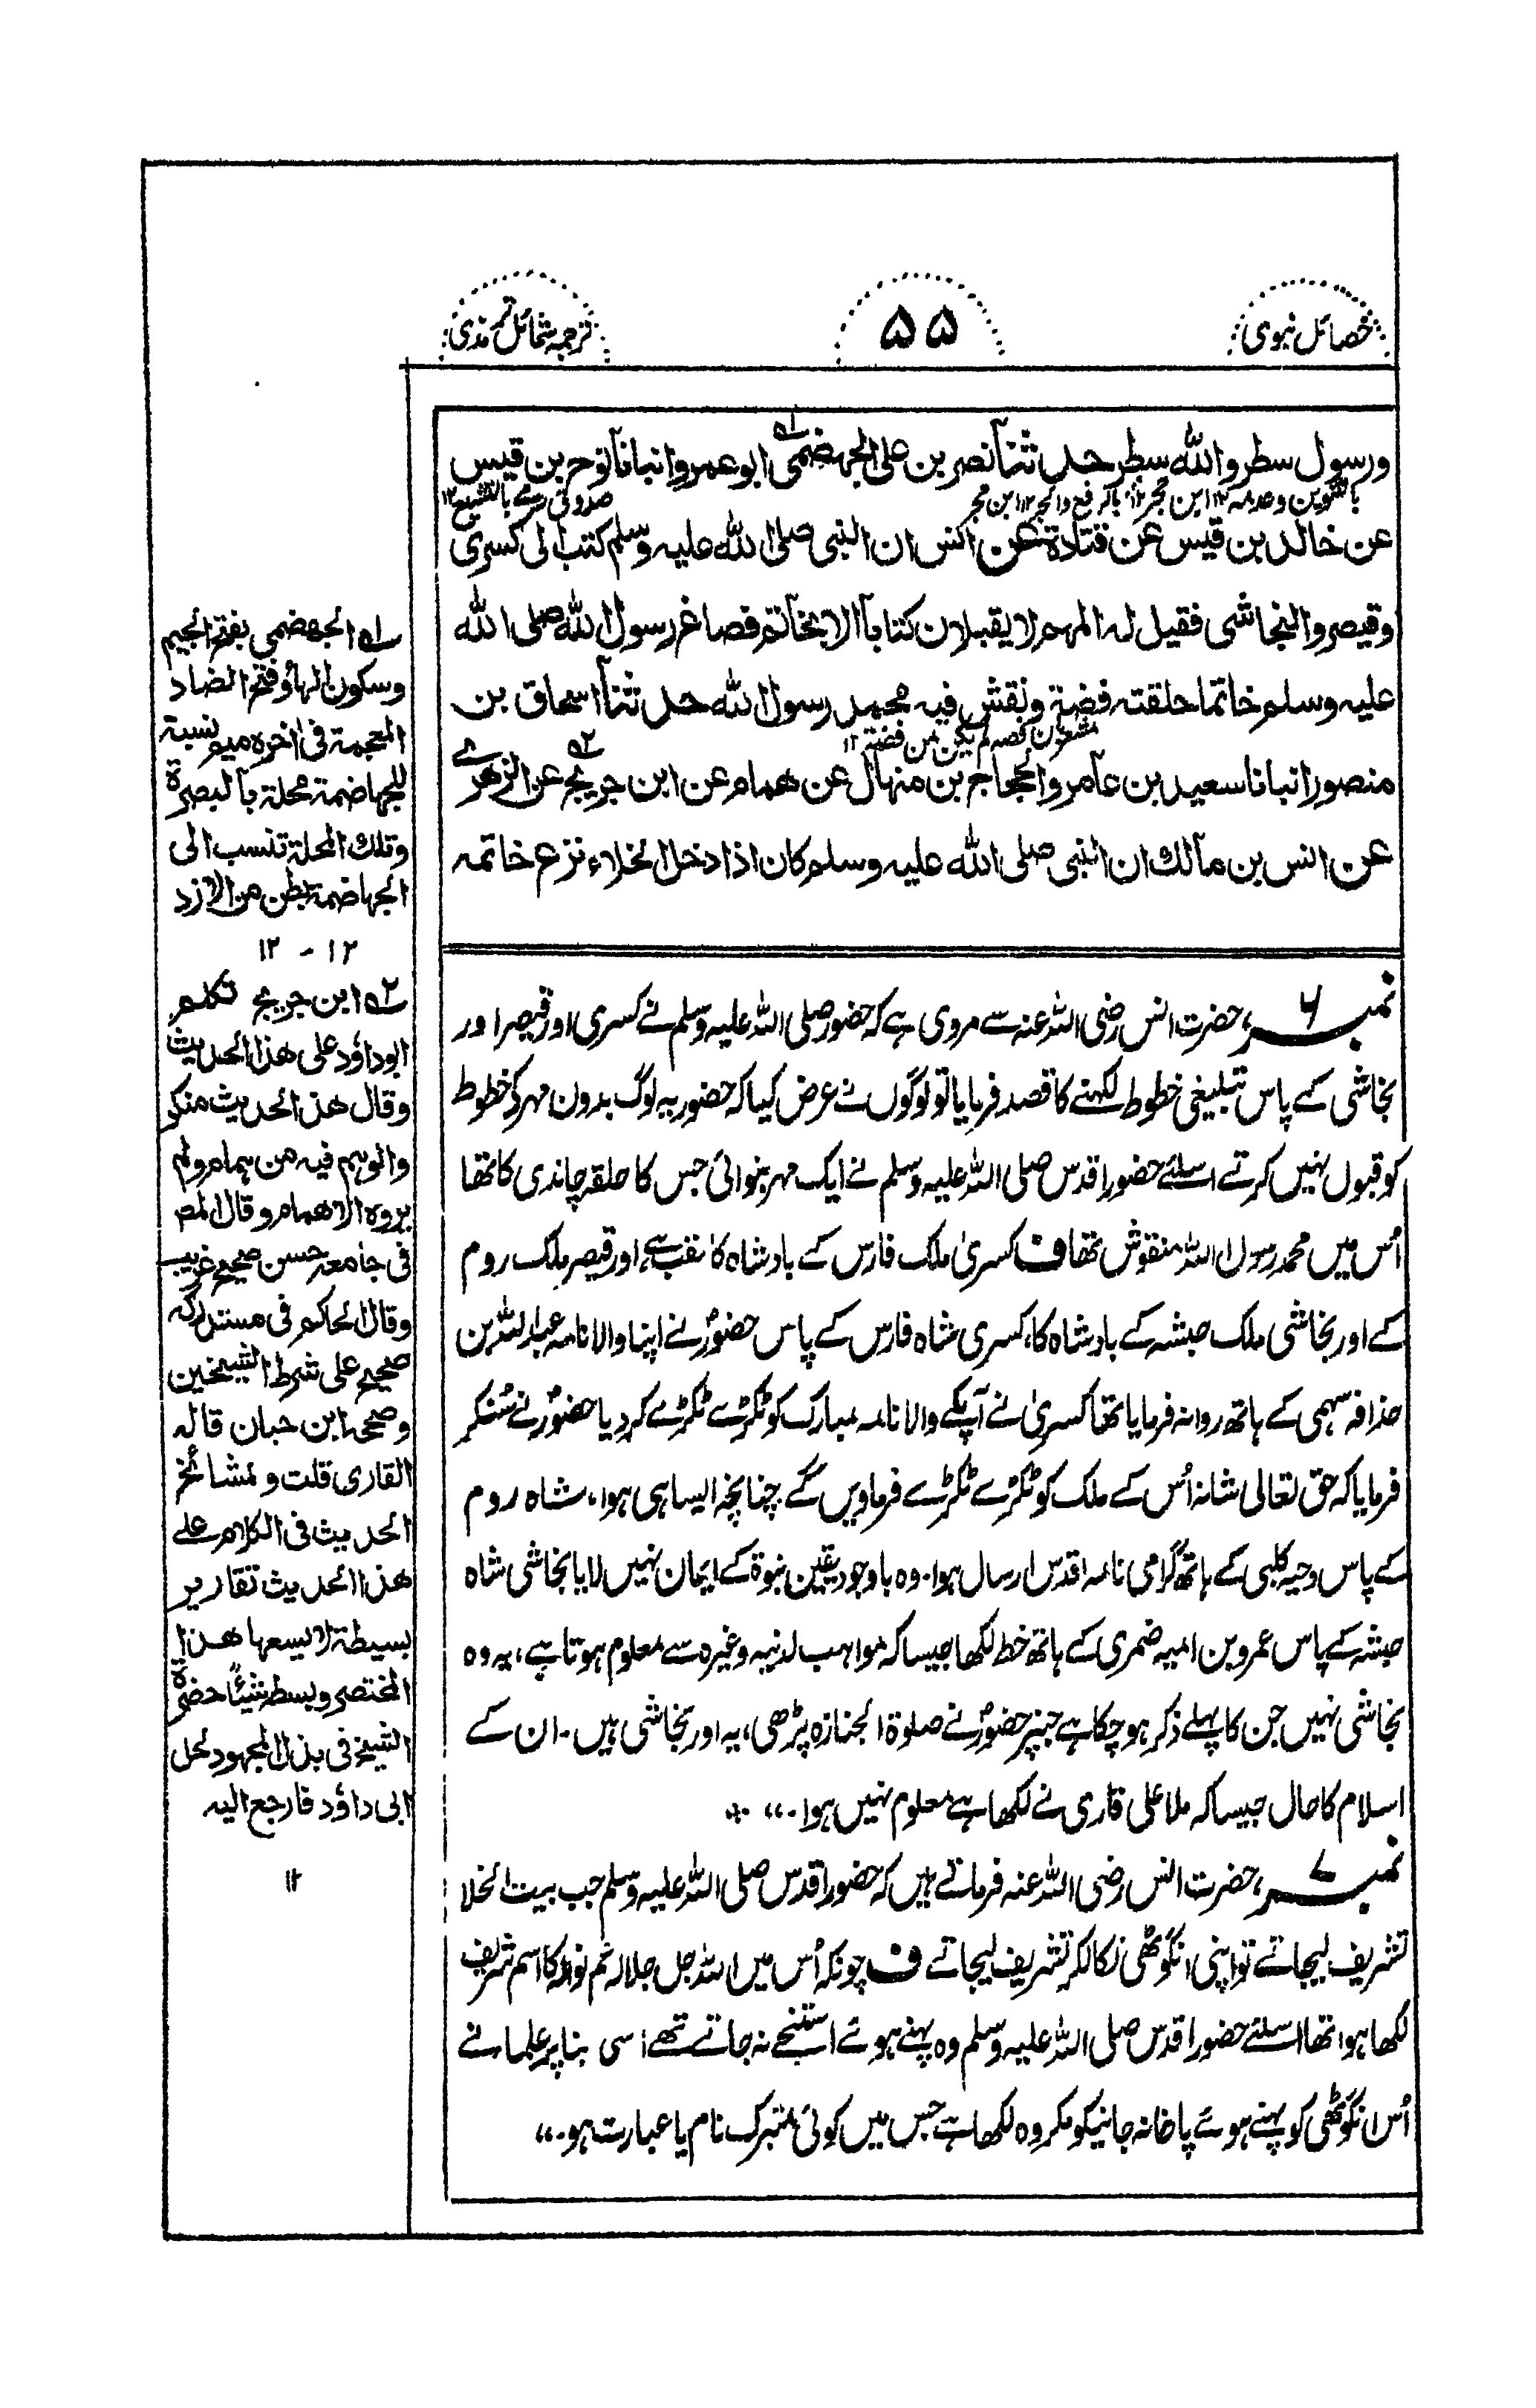 خصائل نبوی
۵۵
ترجمہ شمائل ترمذی
ورسول سطر واللّٰہ سطر حدثنا نصر بن علی الجہضمی ابو عمرو انبانا نوح بن قیس
بالتنوین وعدمہ ۱۲ ابن حجر ۱۲ بالرفع والجر ۱۲ ابن حجر
صدوق رمی بالتشیع ۱۲
عن خالد بن قیس عن قتادة عن انس ان النبی صلی اللّٰہ علیہ وسلم کتب الی کسری
وقیصر والنجاشی فقیل لہ انہم لا یقبلان کتابا الا بخاتم فصاغ رسول اللّٰہ صلی اللّٰہ
علیہ وسلم خاتما حلقتہ فضة ونقش فیہ محمد رسول اللّٰہ حدثنا اسحاق بن
مشعر بان فصہ لم یکن من فضة ۱۲
منصور انبانا سعید بن عامر والحجاج بن منہال عن ھمام عن ابن جریج عن الزھری
عن انس بن مالک ان النبی صلی اللّٰہ علیہ وسلم کان اذا دخل الخلاء نزع خاتمہ
نمبر ۶، حضرت انس رضی اللّٰہ عنہ سے مروی ہے کہ حضور صلی اللّٰہ علیہ وسلم نے کسری اور قیصر اور
نجاشی کے پاس تبلیغی خطوط لکہنے کا قصد فرمایا تو لوگوں نے عرض کیا کہ حضور یہ لوگ بدون مہر کے خطوط
کو قبول نہیں کرتے اسلئے حضور اقدس صلی اللّٰہ علیہ وسلم نے ایک مہر بنوائی جس کا حلقہ چاندی کا تھا
اُس میں محمد رسول اللّٰہ منقوش تھا ف کسریٰ ملک فارس کے بادشاہ کا لقب ہے اور قیصر ملک روم
کے اور نجاشی ملک حبشہ کے بادشاہ کا، کسری شاہ فارس کے پاس حضورؐ نے اپنا والا نامہ عبداللّٰہ بن
حذافہ سہمی کے ہاتھ روانہ فرمایا تھا کسریٰ نے آپکے والا نامہ مبارک کو ٹکڑے ٹکڑے کر دیا حضورؐ نے سُنکر
فرمایا کہ حق تعالی شانہ اُس کے ملک کو ٹکڑے ٹکڑے فرماویں گے چنانچہ ایسا ہی ہوا، شاہ روم
کے پاس وحیہ کلبی کے ہاتھ گرامی نامہ اقدس ارسال ہوا۔ وہ باوجود یقین نبوة کے ایمان نہیں لایا نجاشی شاہ
حبشہ کے پاس عمرو بن امیہ ضمری کے ہاتھ خط لکھا جیسا کہ مواہب لدنیہ وغیرہ سے معلوم ہوتا ہے، یہ وہ
نجاشی نہیں جن کا پہلے ذکر ہو چکا ہے جنپر حضورؐ نے صلوة الجنازہ پڑھی، یہ اور نجاشی ہیں۔ ان کے
اسلام کا حال جیسا کہ ملا علی قاری نے لکھا ہے معلوم نہیں ہوا۔،،
نمبر ۷، حضرت انس رضی اللّٰہ عنہ فرماتے ہیں کہ حضور اقدس صلی اللّٰہ علیہ وسلم جب بیت الخلا
تشریف لیجاتے تو اپنی انگوٹھی نکالکر تشریف لیجاتے ف چونکہ اُس میں اللّٰہ جل جلالہ عم نوالہ کا اسم شریف
لکھا ہوا تھا اسلئے حضور اقدس صلی اللّٰہ علیہ وسلم وہ پہنے ہوئے استنجے نہ جاتے تھے اسی بنا پر علما نے
اُس انگوٹھی کو پہنے ہوئے پاخانہ جانیکو مکروہ لکھا ہے جس میں کوئی متبرک نام یا عبارت ہو۔،،
لہ الجھضمی بفتح الجیم
وسکون الہأ وفتح الضاد
المعجمة فی اخرہ میم نسبة
للجہاضمة محلة بالبصرة
وتلک المحلة تنسب الی
الجہاضمة بطن من الازد
۱۲ - ۱۲
۲ہ ابن جریج تکلم
ابوداؤد علی ھذا الحدیث
وقال ھذ الحدیث منکر
والوہم فیہ من ہمام ولم
یروہ الا ھمام وقال المص
فی جامعہ حسن صحیح غریب
وقال الحاکم فی مستدرکہ
صحیح علی شرط الشیخین
وصححہ ابن حبان قالہ
القاری قلت ولمشائخ
الحدیث فی الکلام علے
ھذا الحدیث تقاریر
بسیطة لا یسعہا ھذا
المختصر وبسط شیئًا حضرة
الشیخ فی بذل المجہود لحل
ابی داؤد فارجع الیہ
۱۲